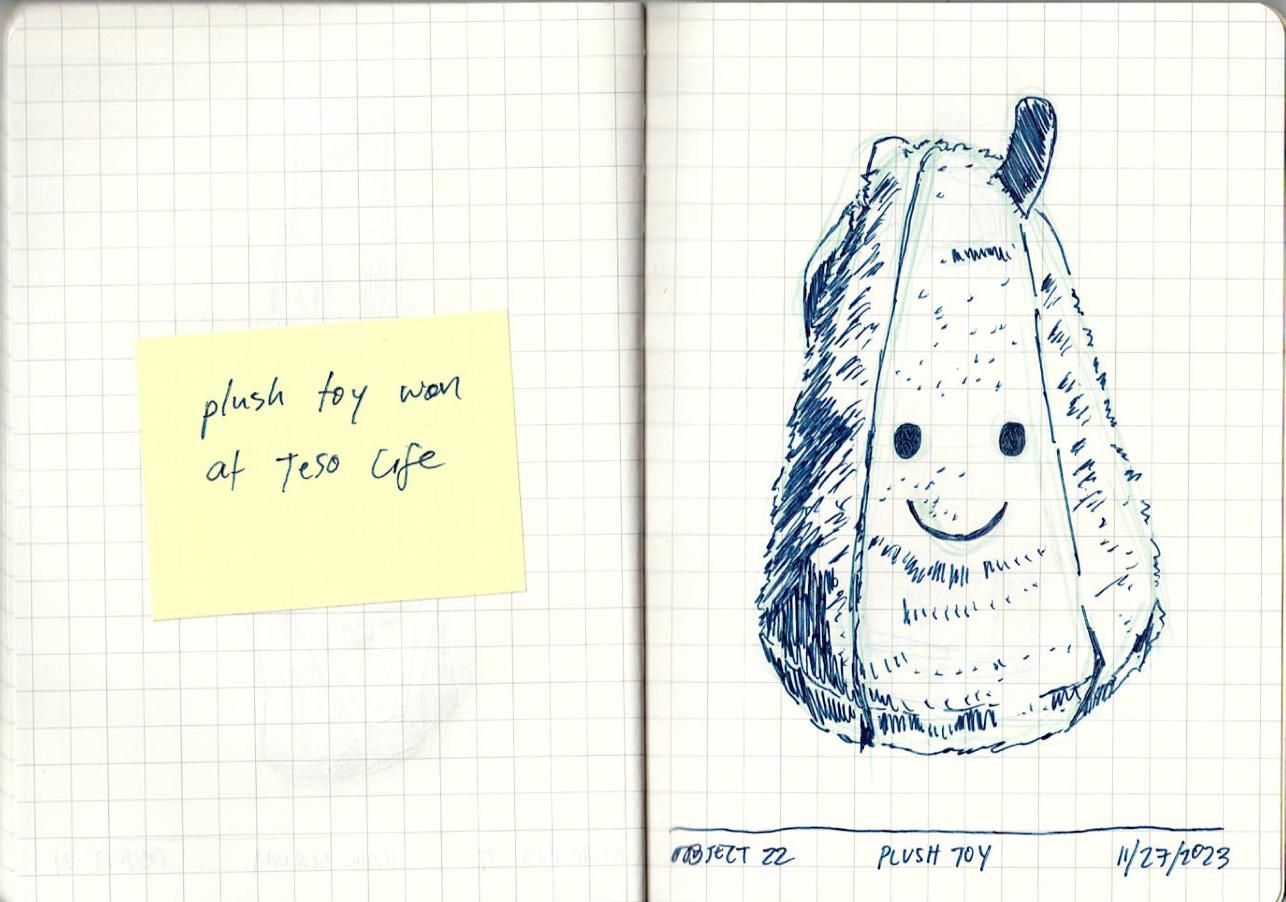 plush toy won
at Teso Life
OBJECT 22 PLUSH TOY 11/27/2023